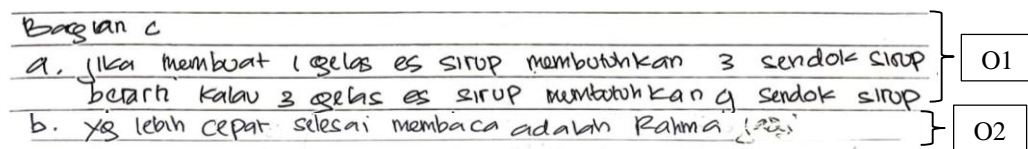 Bagian c
a. jika membuat 1 gelas es sirup membutuhkan 3 sendok sirup
berarti kalau 3 gelas es sirup membutuhkan 9 sendok sirup
b. yg lebih cepat selesai membaca adalah Rahma
O1
O2